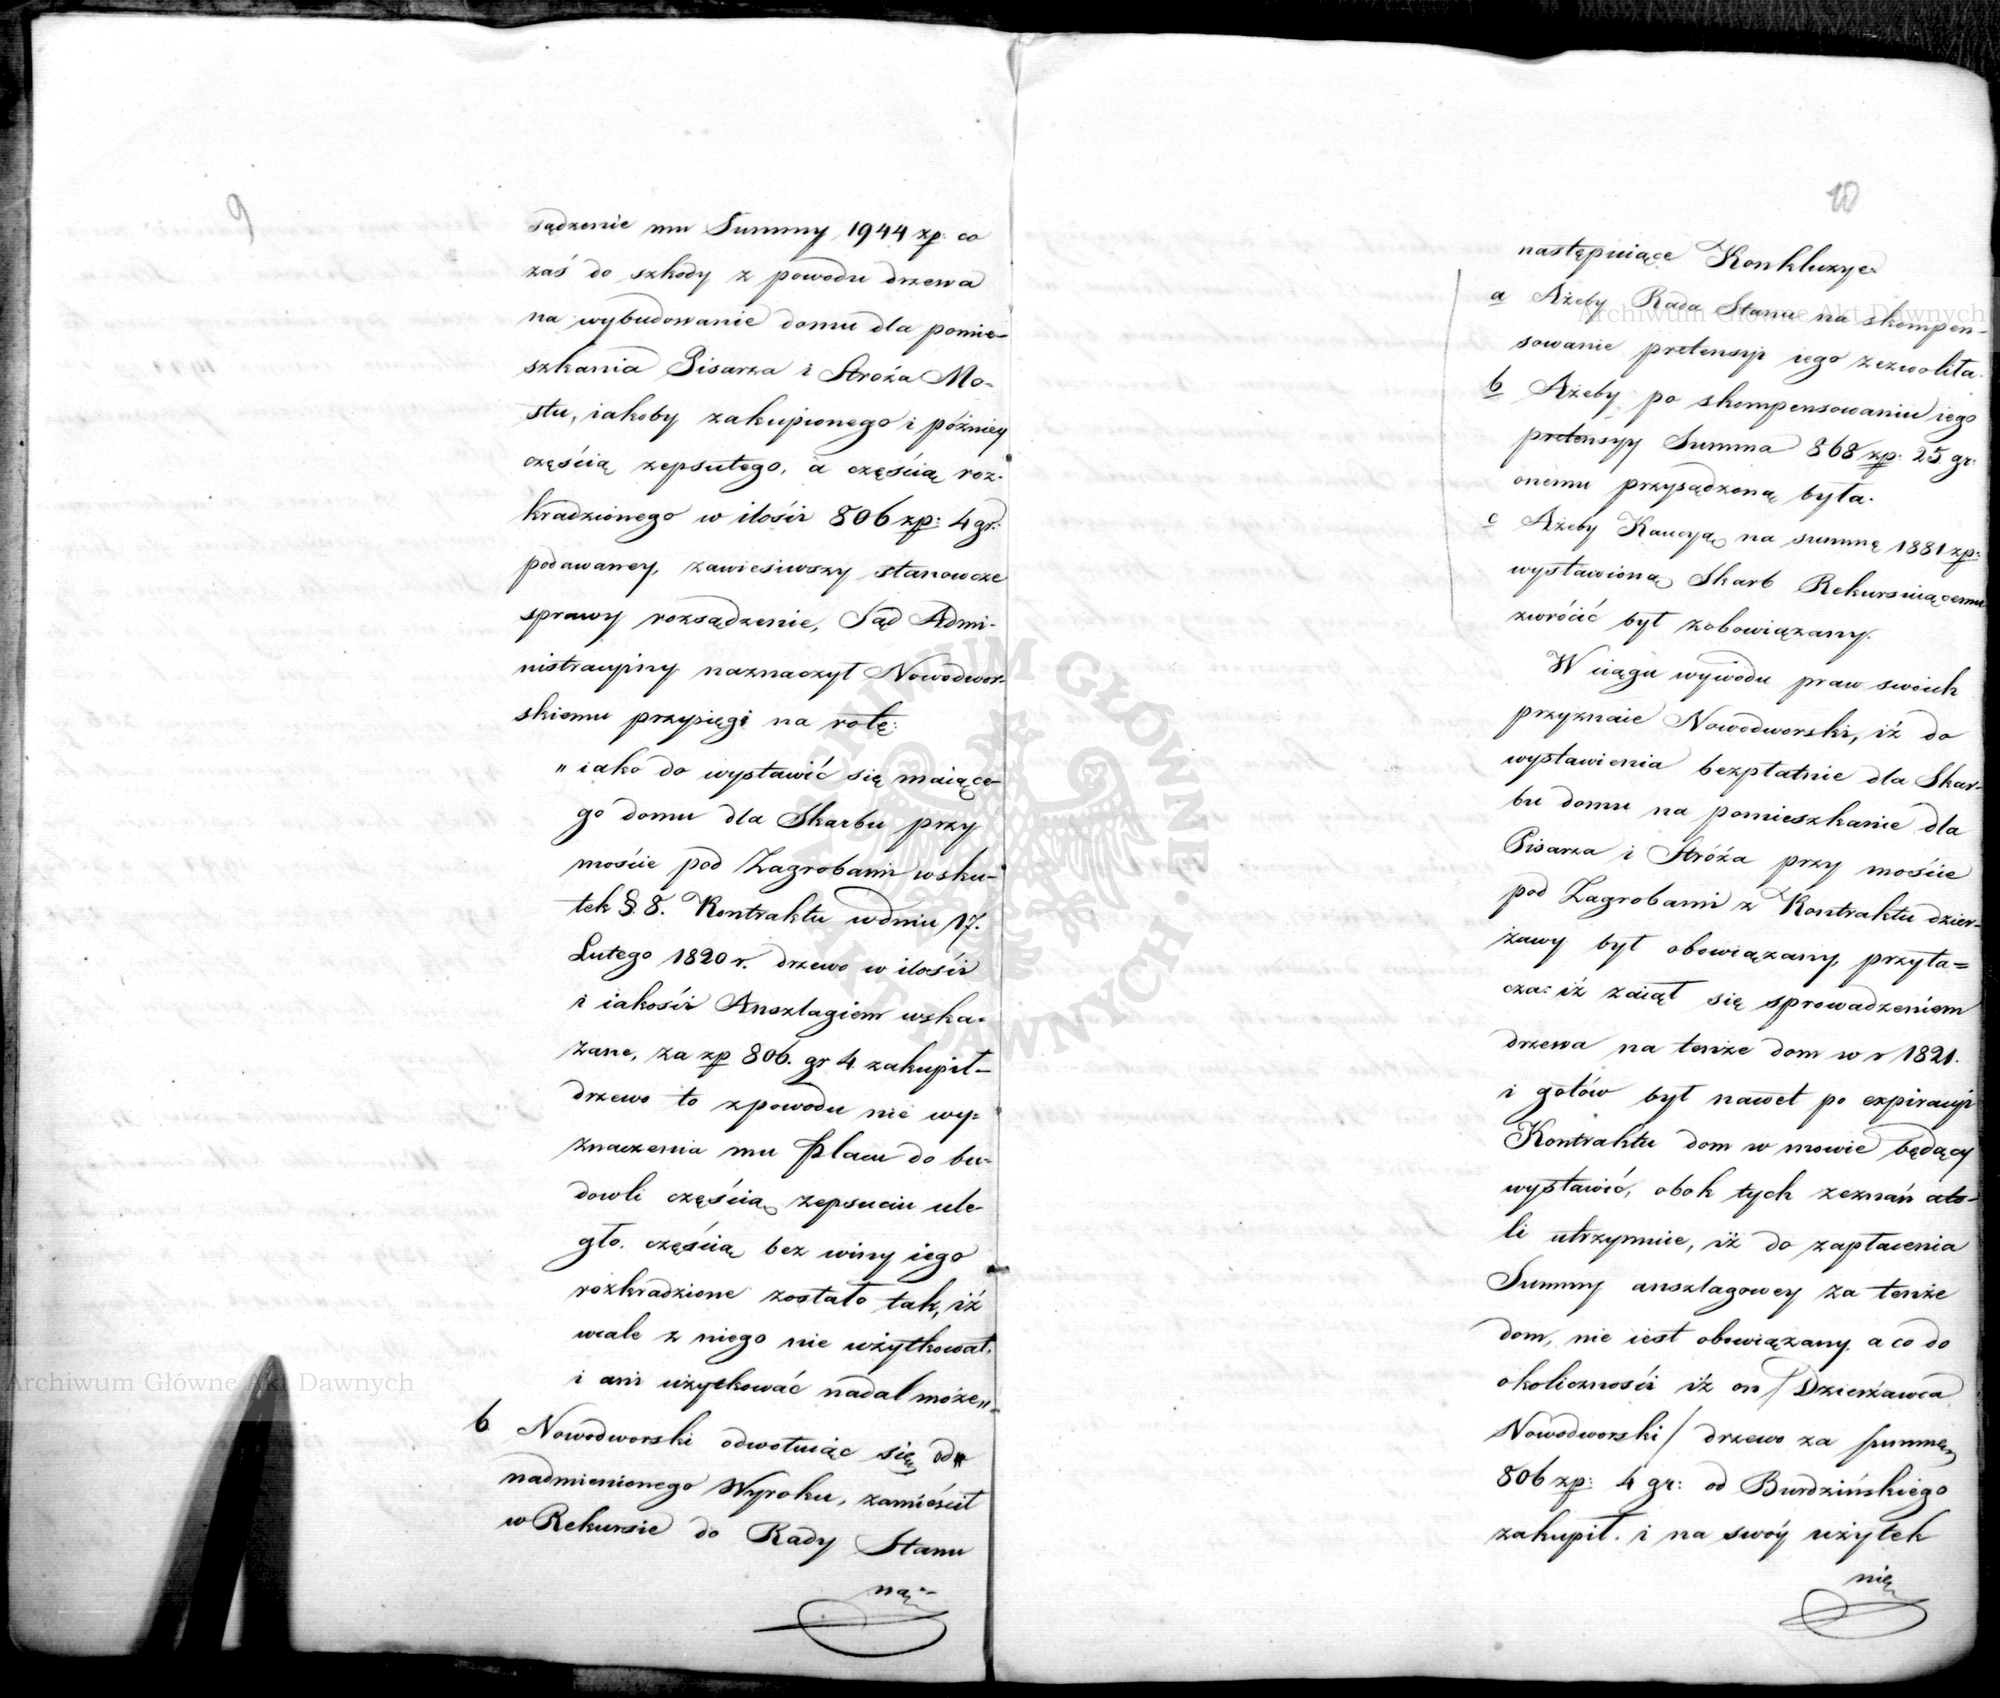 9
sądzenie mu Summy 1944 zp: co
zaś do szkody z powodu drzewa
na wybudowanie domu dla pomie-
szkania Pisarza i Stroża Mo-
stu, iakoby zakupionego i późniey
częścią zepsutego, a częścią roz-
kradzionego w ilości 806 zp: 4 gr:
podawaney, zawiesiwszy stanowcze
sprawy rozsądzenie, Sąd Admi-
nistracyiny naznaczył Nowodwor-
skiemu przysięgi na rotę:
„ iako do wystawić się maiące-
go domu dla Skarbu przy
moście pod Zagrobami wsku-
tek §. 8. Kontraktu w dniu 17.
Lutego 1820 r. drzewo w ilości
i iakości Anszlagiem wska-
zane, za zp 806. gr 4. zakupił-
drzewo to z powodu nie wy-
znaczenia mu placu do bu-
dowli częścią zepsuciu ule-
gło. częścią bez winy iego
rozkradzione zostało tak, iż
wcale z niego nie użytkował,
i ani użytkować nadal może„
b Nowodworski odwołuiąc się od
nadmienionego Wyroku, zamieścił
w Rekursie do Rady Stanu
na-
10
następuiące Konkluzye
a Ażeby Rada Stanu na skompen-
sowanie pretensyi iego zezwoliła.
b Ażeby po skompensowaniu iego
pretensyy Summa 868 zp: 25 gr:
onemu przysądzoną była.
c Ażeby Kaucyą na summę 1881 zp:
wystawioną Skarb Rekursuiącemu
zwrócić był zobowiązany.
W ciągu wywodu praw swoich
przyznaie Nowodworski, iż do
wystawienia bezpłatnie dla Skar-
bu domu na pomieszkanie dla
Pisarza i Stróża przy moście
pod Zagrobami z Kontraktu dzier-
żawy był obowiązany, przyta=
cza: iż zaiął się sprowadzeniem
drzewa na tenże dom w r 1821.
i gotów był nawet po expiracyi
Kontraktu dom w mowie będący
wystawić, obok tych zeznań ato-
li utrzymuie, iż do zapłacenia
Summy anszlagowey za tenże
dom, nie iest obowiązany a co do
okoliczności iż on / Dzierżawca
Nowodworski / drzewo za summę
806 zp: 4 gr: od Burdzińskiego
zakupił. i na swóy użytek
nie
Archiwum Główne Akt Dawnych
Archiwum Główne Akt Dawnych
ARCHIWUM GŁÓWNE AKT DAWNYCH